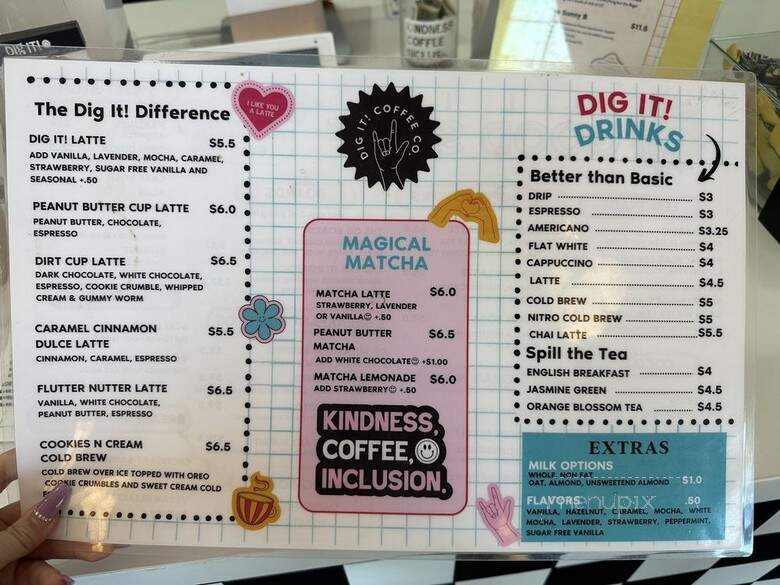 DIG IT!
KINDNESS
COFFEE
Sonny B
$11.5
The Dig It! Difference
I LIKE YOU
A LATTE
DIG IT! LATTE $5.5
ADD VANILLA, LAVENDER, MOCHA, CARAMEL,
STRAWBERRY, SUGAR FREE VANILLA AND
SEASONAL +.50
PEANUT BUTTER CUP LATTE $6.0
PEANUT BUTTER, CHOCOLATE,
ESPRESSO
DIRT CUP LATTE $6.5
DARK CHOCOLATE, WHITE CHOCOLATE,
ESPRESSO, COOKIE CRUMBLE, WHIPPED
CREAM & GUMMY WORM
CARAMEL CINNAMON $5.5
DULCE LATTE
CINNAMON, CARAMEL, ESPRESSO
FLUTTER NUTTER LATTE $6.5
VANILLA, WHITE CHOCOLATE,
PEANUT BUTTER, ESPRESSO
COOKIES N CREAM $6.5
COLD BREW
COLD BREW OVER ICE TOPPED WITH OREO
COOKIE CRUMBLES AND SWEET CREAM COLD
DIG IT! COFFEE CO.
MAGICAL
MATCHA
MATCHA LATTE $6.0
STRAWBERRY, LAVENDER
OR VANILLA +.50
PEANUT BUTTER $6.5
MATCHA
ADD WHITE CHOCOLATE +$1.00
MATCHA LEMONADE $6.0
ADD STRAWBERRY +.50
KINDNESS,
COFFEE,
INCLUSION.
DIG IT!
DRINKS
Better than Basic
DRIP $3
ESPRESSO $3
AMERICANO $3.25
FLAT WHITE $4
CAPPUCCINO $4
LATTE $4.5
COLD BREW $5
NITRO COLD BREW $5
CHAI LATTE $5.5
Spill the Tea
ENGLISH BREAKFAST $4
JASMINE GREEN $4.5
ORANGE BLOSSOM TEA $4.5
EXTRAS
MILK OPTIONS
WHOLE, NON FAT
OAT, ALMOND, UNSWEETEND ALMOND $1.0
FLAVORS .50
menupix
VANILLA, HAZELNUT, CARAMEL, MOCHA, WHITE
MOCHA, LAVENDER, STRAWBERRY, PEPPERMINT,
SUGAR FREE VANILLA